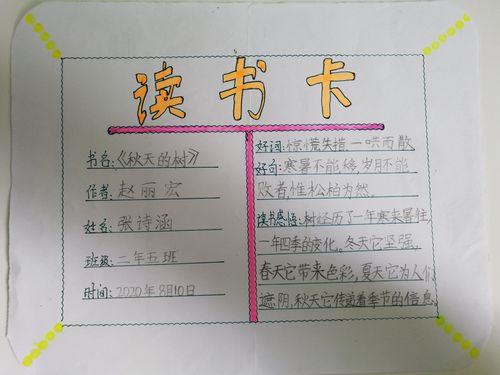 读书卡
书名:《秋天的树》
作者:赵丽宏
姓名:张诗涵
班级:二年五班
时间:2020年8月10日
好词:惊慌失措 一哄而散
好句:寒暑不能移,岁月不能
败者,惟松柏为然。
读书感悟:树经历了一年寒来暑往,
一年四季的变化。冬天它坚强,
春天它带来色彩,夏天它为人们
遮阴,秋天它传递着季节的信息。